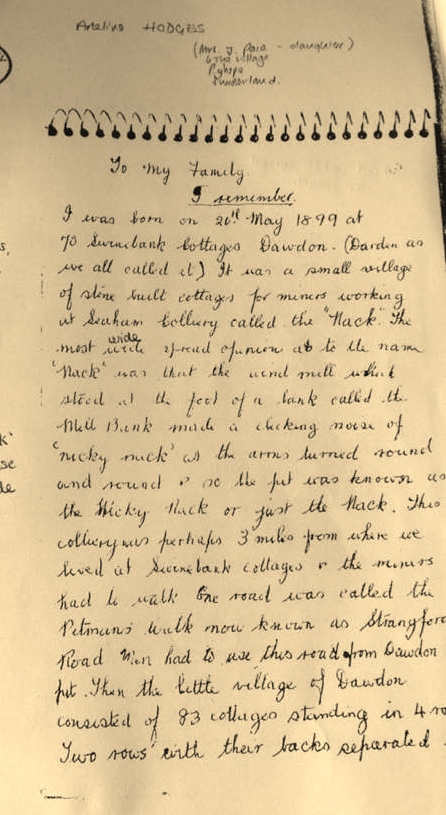 Amelina HODGES
(Mrs. J. Pace - daughter)
Village
Ryhope
Sunderland.
To My Family.
I remember.
I was born on 20th May 1899 at
70 Swinebank Cottages Dawdon. (Darden as
we all called it) It was a small village
of stone built cottages for miners working
at Seaham Colliery called the "Nack". The
most wide spread opinion as to the name
'Nack' was that the wind mill which
stood at the foot of a bank called the
Mill Bank made a clicking noise of
'nicky nack' as the arms turned round
and round & so the pit was known as
the Nicky Nack or just the Nack. This
colliery was perhaps 3 miles from where we
lived at Swinebank cottages & the miners
had to walk One road was called the
Pitman's walk now known as Strangford
Road Men had to use this road from Dawdon
pit. Then the little village of Dawdon
consisted of 83 cottages standing in 4 ro
Two rows with their backs separated